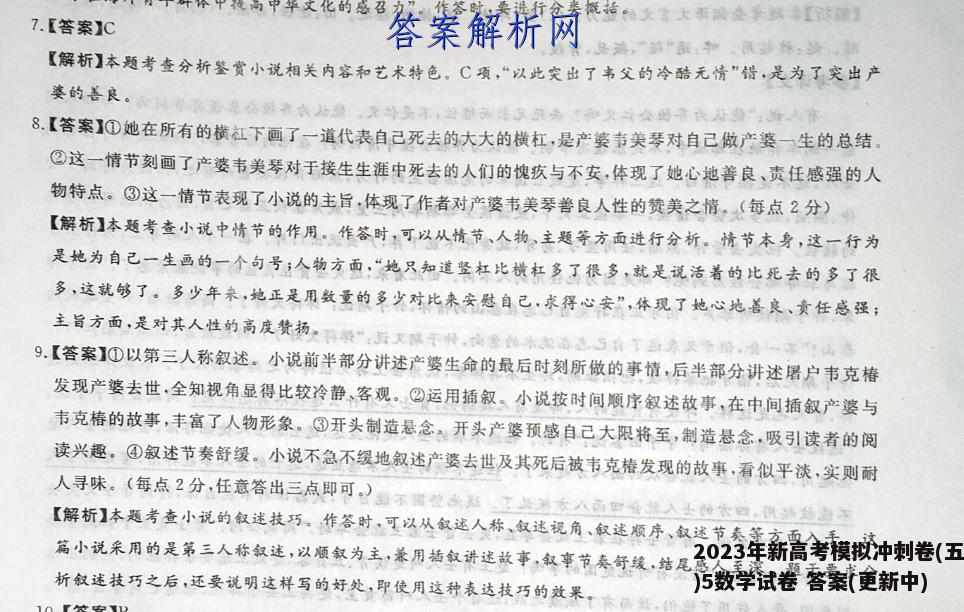 在海外青年群体中提高中华文化的感召力”。作答时,要进行分类概括。
答案解析网
7.【答案】C
【解析】本题考查分析鉴赏小说相关内容和艺术特色。C项,“以此突出了韦父的冷酷无情”错,是为了突出产
婆的善良。
8.【答案】①她在所有的横杠下画了一道代表自己死去的大大的横杠,是产婆韦美琴对自己做产婆一生的总结。
②这一情节刻画了产婆韦美琴对于接生生涯中死去的人们的愧疚与不安,体现了她心地善良、责任感强的人
物特点。③这一情节表现了小说的主旨,体现了作者对产婆韦美琴善良人性的赞美之情。(每点2分)
【解析】本题考查小说中情节的作用。作答时,可以从情节、人物、主题等方面进行分析。情节本身,这一行为
是她为自己一生画的一个句号;人物方面,“她只知道竖杠比横杠多了很多,就是说活着的比死去的多了很
多,这就够了。多少年来,她正是用数量的多少对比来安慰自己,求得心安”,体现了她心地善良、责任感强;
主旨方面,是对其人性的高度赞扬。
9.【答案】①以第三人称叙述。小说前半部分讲述产婆生命的最后时刻所做的事情,后半部分讲述屠户韦克椿
发现产婆去世,全知视角显得比较冷静、客观。②运用插叙。小说按时间顺序叙述故事,在中间插叙产婆与
韦克椿的故事,丰富了人物形象。③开头制造悬念。开头产婆预感自己大限将至,制造悬念,吸引读者的阅
读兴趣。④叙述节奏舒缓。小说不急不缓地叙述产婆去世及其死后被韦克椿发现的故事,看似平淡,实则耐
人寻味。(每点2分,任意答出三点即可。)
【解析】本题考查小说的叙述技巧。作答时,可以从叙述人称、叙述视角、叙述顺序、叙述节奏等方面入手。这
篇小说采用的是第三人称叙述,以顺叙为主,兼用插叙讲述故事,叙事节奏舒缓,结尾感人至深。题干要求分
析叙述技巧之后,还要说明这样写的好处,即使用这种表达技巧的效果。
2023年新高考模拟冲刺卷(五
)5数学试卷 答案(更新中)
10.【答案】B